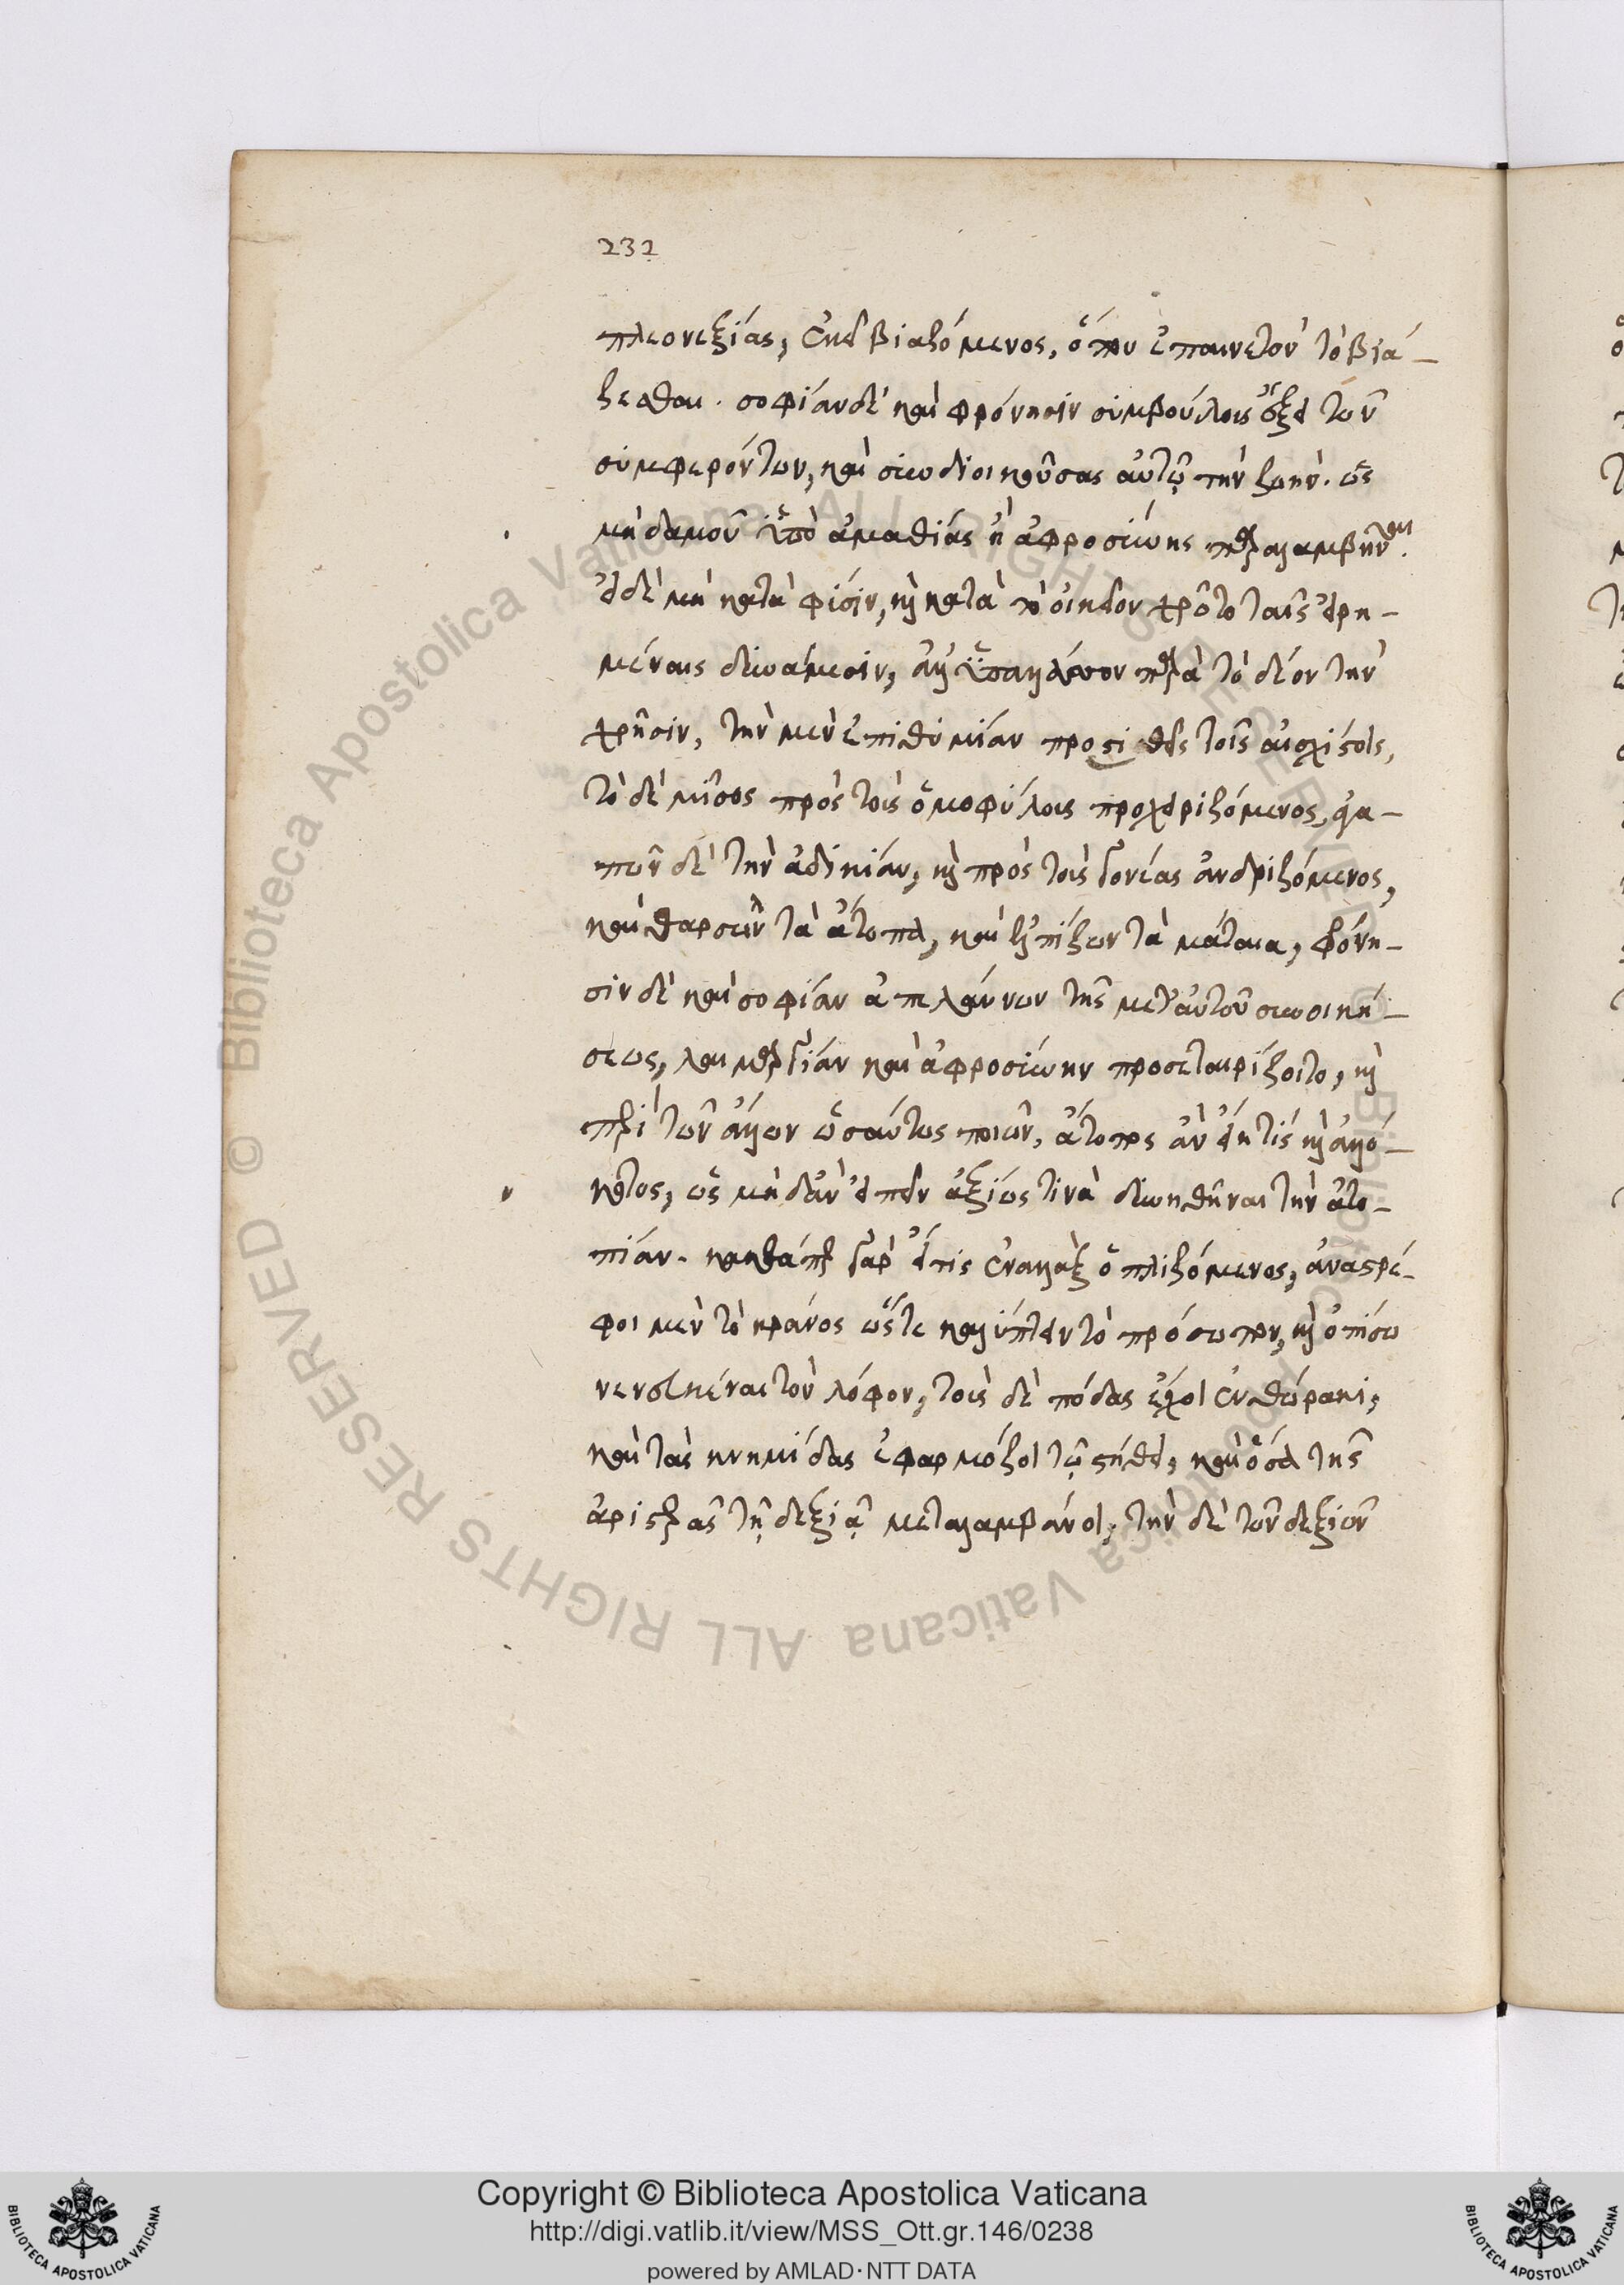 232
πλεονεξίας, ἐκεῖ βιαζόμενος, ὅπου ἐπαινετὸν τὸ βιά-
ζεσθαι. σοφίαν δὲ καὶ φρόνησιν συμβούλοις ἕξει τῶν
συμφερόντων, καὶ συνδιοικούσας αὐτῷ τὴν ζωήν. ὡς
μηδαμοῦ ὑπὸ ἀμαθίας ἢ ἀφροσύνης παραλαμβην
εἰ δὲ μὴ κατὰ φύσιν, καὶ κατὰ τὸ οἰκεῖον χρῷτο ταῖς εἰρη-
μέναις δυνάμεσιν, ἀλλ' ὑπαλλάττοι παρὰ τὸ δέον τὴν
χρῆσιν, τὴν μὲν ἐπιθυμίαν προστιθεὶς τοῖς αἰσχίστοις,
τὸ δὲ μῖσος πρὸς τοὺς ὁμοφύλους προχειριζόμενος, ἀγα-
πῶν δὲ τὴν ἀδικίαν, καὶ πρὸς τοὺς γονέας ἀνδριζόμενος,
καὶ θαρσῶν τὰ ἄτοπα, καὶ ἐλπίζων τὰ μάταια, φρόνη-
σιν δὲ καὶ σοφίαν ἀπελαύνων τῆς μετ' αὐτοῦ συνοικη-
σεως, λαιμαργίαν καὶ ἀφροσύνην προσεταιρίζοιτο, καὶ
περὶ τῶν ἄλλων ὡσαύτως ποιῶν, ἄτοπος ἂν εἴη τίς καὶ ἀλλό-
κοτος, ὡς μηδ' ἂν εἰπεῖν ἀξίως τινὰ δυνηθῆναι τὴν ἀτο-
πίαν. καθάπερ γὰρ εἴ τις ἐναλλὰξ ὁπλιζόμενος, ἀναστρέ-
φοι μὲν τὸ κράνος ὥστε καλύπτειν τὸ πρόσωπον, καὶ ὀπίσω
νενευκέναι τὸν λόφον, τοὺς δὲ πόδας ἔχοι ἐν θώρακι,
καὶ τὰς κνημίδας ἐφαρμόζοι τῷ στήθει, καὶ ὅσα τῆς
ἀριστερᾶς τῇ δεξιᾷ μεταλαμβάνοι, τὴν δὲ τῶν δεξιῶν
Copyright © Biblioteca Apostolica Vaticana
http://digi.vatlib.it/view/MSS_Ott.gr.146/0238
powered by AMLAD·NTT DATA